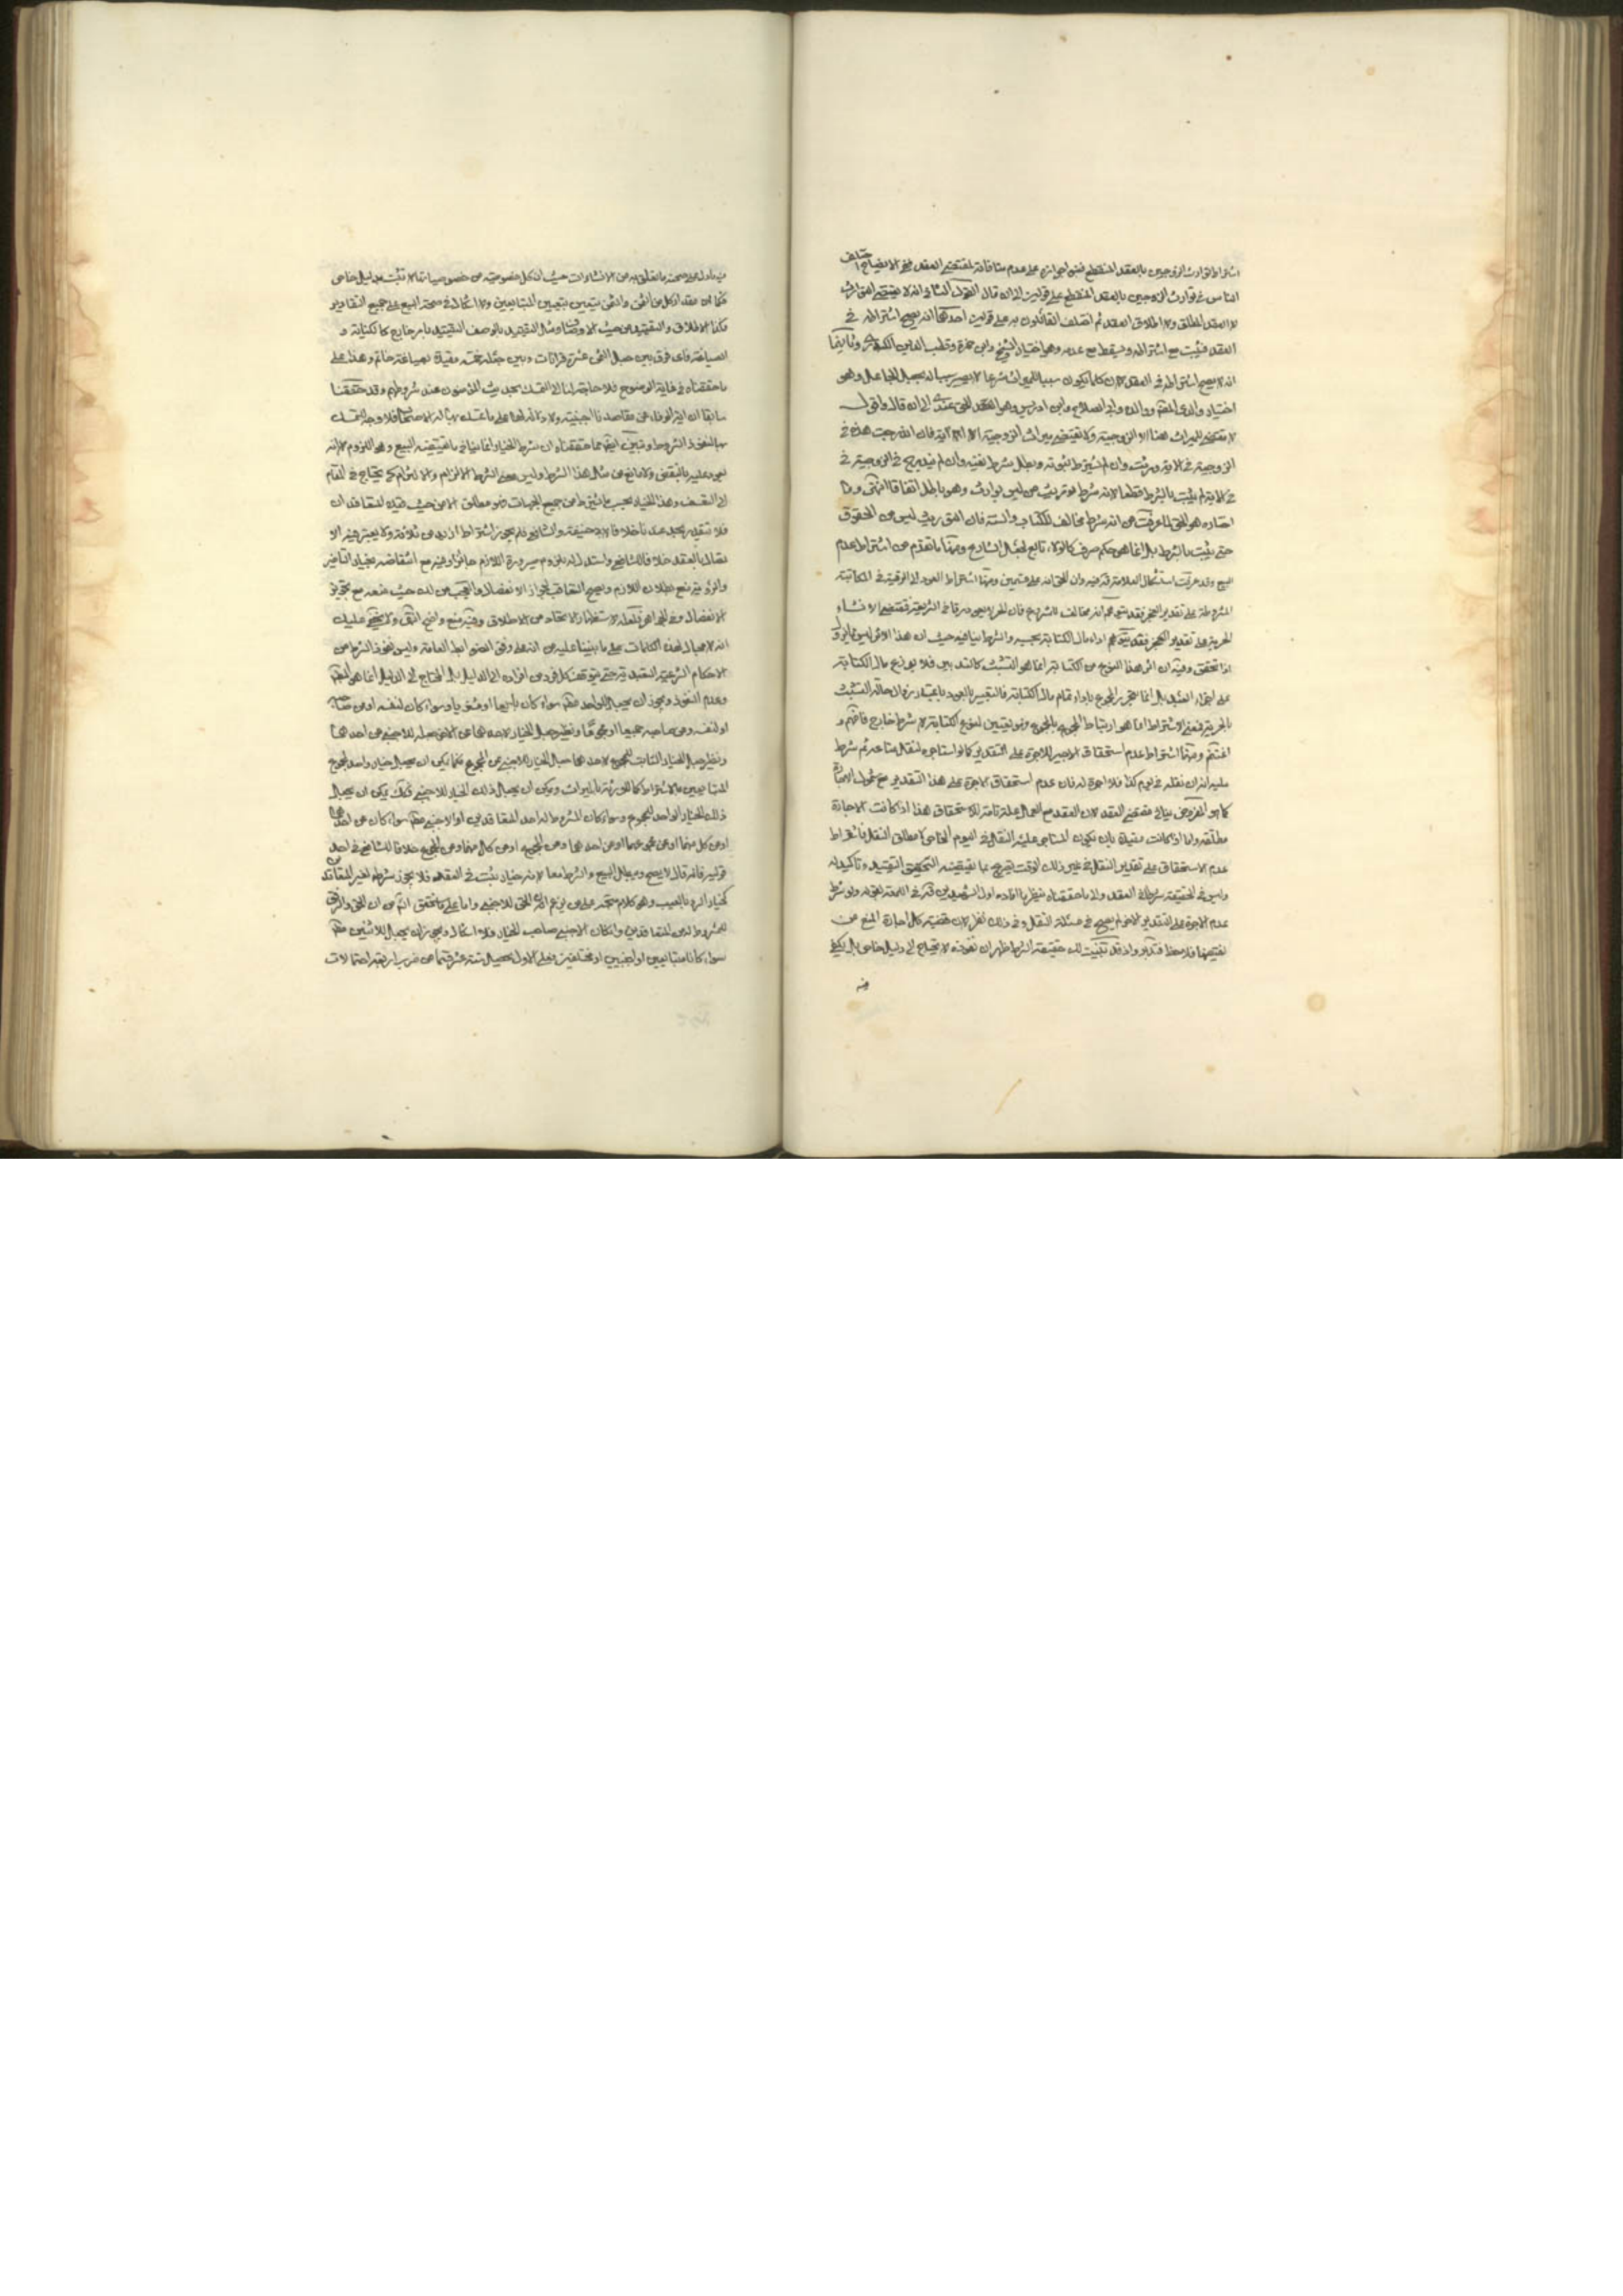 اشتراط توارث الزوجين بالعقد المنقطع فنفى جوازه على عدم منافاته لمقتضى العقد ففى الايضاح اختلف
الناس فى توارث الزوجين بالعقد المنقطع على قولين الى ان قال القول الثانى انه لا يقتضى التوارث
لا العقد المطلق ولا اطلاق العقد ثم اختلف القائلون به على قولين احدهما انه يصح اشتراطه فى
العقد فيثبت مع اشتراطه ويسقط مع عدمه وهو اختيار الشيخ وابن حمزة وقطب الدين الكيدرى وثانيهما
انه لا يصح اشتراطه فى العقد لان كلما يكون سببا للميراث شرعا لا يصير سببا له بجعل الجاعل وهو
اختيار والدى المصنف ووالده وابى الصلاح وابن ادريس وهو الحق عندى الى ان قال واقول
لا مقتضى للميراث هنا الا الزوجية ولا تقتضى ميراث الزوجية الا الآية فان اندرجت هذه فى
الزوجية فى الآية ورثت وان لم يشترط ثبوته وبطل شرط نفيه وان لم تندرج فى الزوجية فى
فى الآية لم يثبت بالشرط قطعا لانه شرط توريث من ليس بوارث وهو باطل اتفاقا انتهى وما
اختاره هو الحق لما عرفت من انه شرط مخالف للكتاب والسنة فان التوريث ليس من الحقوق
حتى يثبت بالشرط بل انما هو حكم صرف كالولاء تابع لجعل الشارع ومنها ما تقدم من اشتراط عدم
البيع وقد عرفت استشكال العلامة قده فيه وان الحق انه على قسمين ومنها اشتراط العود الى الرقية فى المكاتبة
المشروطة على تقدير العجز فقد يتوهم انه مخالف للمشروع فان الحر لا يعود رقا فى الشريعة فمقتضى الانشاء
الحرية على تقدير العجز فقد يتوهم اداء مال الكتابة بحسبه والشرط ينافيه حيث ان هذا الاثر ليس مما يزول
اذا تحقق وفيه ان اثر هذا النوع من الكتابة انما هو التشبث كالتدبير فلا يوزع مال الكتابة
على اجزاء العبد بل انما يتحرر المجموع باداء تمام مال الكتابة فالتعبير بالعود باعتبار زوال حالة التشبث
بالحرية فمعنى الاشتراط انما هو ارتباط المجموع بالمجموع وهو تعيين لنوع الكتابة لا شرط خارج فافهم و
اغتنم ومنها اشتراط عدم استحقاق الاجير للاجرة على التقدير كما لو استاجره لنقل متاعه ثم شرط
عليه انه ان نقله فى يوم كذا فلا اجرة له فان عدم استحقاق الاجرة على هذا التقدير مع شمول الاجارة
كما هو المفروض ينافى مقتضى العقد لان العقد مع العمل علة تامة للاستحقاق هذا اذا كانت الاجارة
مطلقة واما اذا كانت مقيدة بان يكون المستاجر عليه النقل فى اليوم الخاص لا مطلق النقل فاشتراط
عدم الاستحقاق على تقدير النقل فى غير ذلك الوقت تصريح بما يقتضيه التخصيص التقييد وتاكيد له
وليس فى الحقيقة شرطا فى العقد والى ما حققناه ينظر ما افاده اول الشهيدين قده فى اللمعة بقوله ولو شرط
عدم الاجرة على التقدير الآخر لم يصح فى مسئلة النقل وفى ذلك نظر لان قضية كل اجارة المنع من
نقيضها فلاحظ فتدبر واذ قد تبينت لك حقيقة الشرط ظهر ان نفوذه لا يحتاج الى دليل خاص بل يكفى
فيه
فيه ما دل على صحة ما تعلق به من الانشاءات حيث ان كل خصوصية من خصوصياتها لا تثبت بدليل خاص
فكما ان مقدار كل من الثمن والمثمن يتعين بتعيين المتبايعين ولا اشكال فى صحة البيع على جميع التقادير
فكذا الاطلاق والتقييد من حيث الاوصاف ومثل التقييد بالوصف التقييد بامر خارج كالكتابة و
الصياغة فاى فرق بين جعل الثمن عشرة قرانات وبين جعله فضة مقيدة بصياغة خاتم وهذا على
ما حققناه فى غاية الوضوح فلا حاجة لنا الى التمسك بحديث المؤمنون عند شروطهم وقد حققنا
سابقا ان اية الوفاء عن مقاصدنا اجنبية ولا دلالة لها على ما تمسك بها له الاصحاب فلا وجه للتمسك
بها لنفوذ الشروط وتبين ايضا مما حققناه ان شرط الخيار انما ينافى ما يقتضيه البيع وهو اللزوم لانه
يعود عليه بالنقض ولا مانع من مثل هذا الشرط وليس معنى الشرط الالزام والالتزام كى يحتاج فى المقام
الى التعسف وهذا الخيار بحسب ما يشترط من جميع الجهات فهو مطلق الا من حيث قيده المتعاقدان
فلا تتقدر بحد عندنا خلافا لابى حنيفة والشافعى فلم يجوز اشتراط ازيد من ثلاثة ولا يعتبر فيه الا
تصال بالعقد خلافا للشافعى واستدل له بلزوم صيرورة اللازم جائزا وفيه مع انتقاضه بخيار التاخير
والرؤية منع بطلان اللازم ويصح التعاقب بجواز الانفصال والتعجب من ذلك حيث منعه مع تجويز
الانفصال وفى الجواهر بعد الاستظهار الاتحاد من الاطلاق وفيه منع واضح انتهى ولا يخفى عليك
انه لا مجال لهذه الكلمات على ما بنينا عليه من انه على وفق الضوابط العامة وليس نفوذ الشرط من
الاحكام الشرعية التعبدية حتى يتوقف كل فرد من افراده الى الدليل بل المحتاج الى الدليل انما هو المنع
وعدم النفوذ ويجوز ان يجعل لكل واحد منهما سواء كان بايعا او مشتريا وسواء كان لنفسه او من صاحبه
او لنفسه ومن صاحبه جميعا او مجموعا ونظير جعل الخيار لاحدهما عن الاخر جعله للاجنبى عن احدهما
ونظير جعل الخيار الثابت للمجموع لاحدهما جعل الخيار للاجنبى عن المجموع فكما يمكن ان يجعل خيار واحد لمجموع
المتبايعين بالاشتراط كالمورثة بالميراث ويمكن ان يجعل ذلك الخيار للاجنبى فكذلك يمكن ان يجعل
ذلك الخيار الواحد للمجموع وسواء كان المشروط له احد المتعاقدين او الاجنبى منهما سواء كان عن احدهما
او عن كل منهما او عن مجموعهما او عن احدهما وعن المجموع او عن كل منهما وعن المجموع خلافا للشافعى فى احد
قوليه فانه قال لا يصح ويبطل البيع والشرط معا لانه خيار يثبت فى العقد فلا يجوز شرطه لغير المتعاقدين
كخيار الرد بالعيب وهو كلام متجه على من يزعم ان الحق للاجنبى واما على ما تحقق انفا من ان الحق والرفق
للمشروط لهن المتعاقدين وان كان الاجنبى صاحب الخيار فلا اشكال ويجوز ان يجعل للاثنين منهما
سواء كانا متبايعين او اجنبيين او مختلفين فعلى الاول يحصل ستة عشر قسما من ضرب اربعة احتمالات